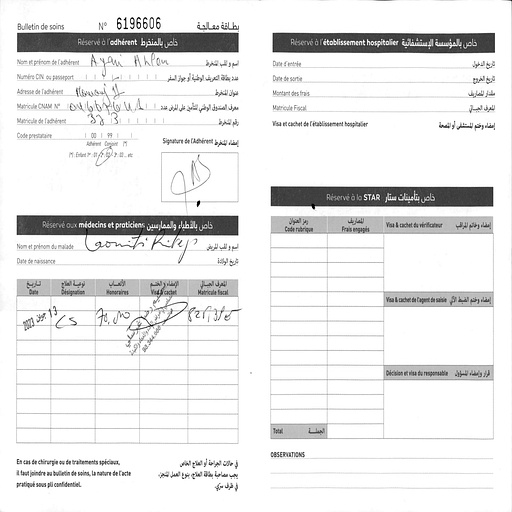 Bulletin de soins N° 6196606 بطاقة معالجة
Réservé à l'adhérent خاص بالمنخرط
Nom et prénom de l'adhérent اسم و لقب المنخرط
Numéro CIN ou passeport عدد بطاقة التعريف الوطنية أو جواز السفر
Adresse de l'adhérent عنوان المنخرط
Matricule CNAM N° معرف الصندوق الوطني للتأمين على المرض عدد
Matricule de l'adhérent 383 رقم المنخرط
Code prestataire 00 99
Adhérent Conjoint (*)
(*) : Enfant 1er : 01 2 : 02 3 : 03 ... etc
Signature de l'Adhérent إمضاء المنخرط
Réservé aux médecins et praticiens خاص بالأطباء والممارسين
Nom et prénom du malade اسم و لقب المريض
Date de naissance تاريخ الولادة
تاريخ نوعية العلاج الأتعاب الإمضاء و الختم المعرف الجبائي
Date Désignation Honoraires Visa & cachet Matricule fiscal
2023 13 CS 70,000
En cas de chirurgie ou de traitements spéciaux,
il faut joindre au bulletin de soins, la nature de l'acte
pratiqué sous pli confidentiel.
في حالات الجراحة أو العلاج الخاص
يجب مصاحبة بطاقة العلاج، بنوع العمل المنجز،
في ظرف سري.
Réservé à l'établissement hospitalier خاص بالمؤسسة الإستشفائية
Date d'entrée تاريخ الدخول
Date de sortie تاريخ الخروج
Montant des frais مقدار المصاريف
Matricule Fiscal المعرف الجبائي
Visa et cachet de l'établissement hospitalier إمضاء وختم المستشفى أو المصحة
Réservé à la STAR خاص بتأمينات ستار
رمز العنوان المصاريف
Code rubrique Frais engagés
Visa & cachet du vérificateur إمضاء وخاتم المراقب
Visa & cachet de l'agent de saisie إمضاء وختم الضبط الآلي
Décision et visa du responsable قرار وإمضاء المسؤول
Total الجملة
OBSERVATIONS